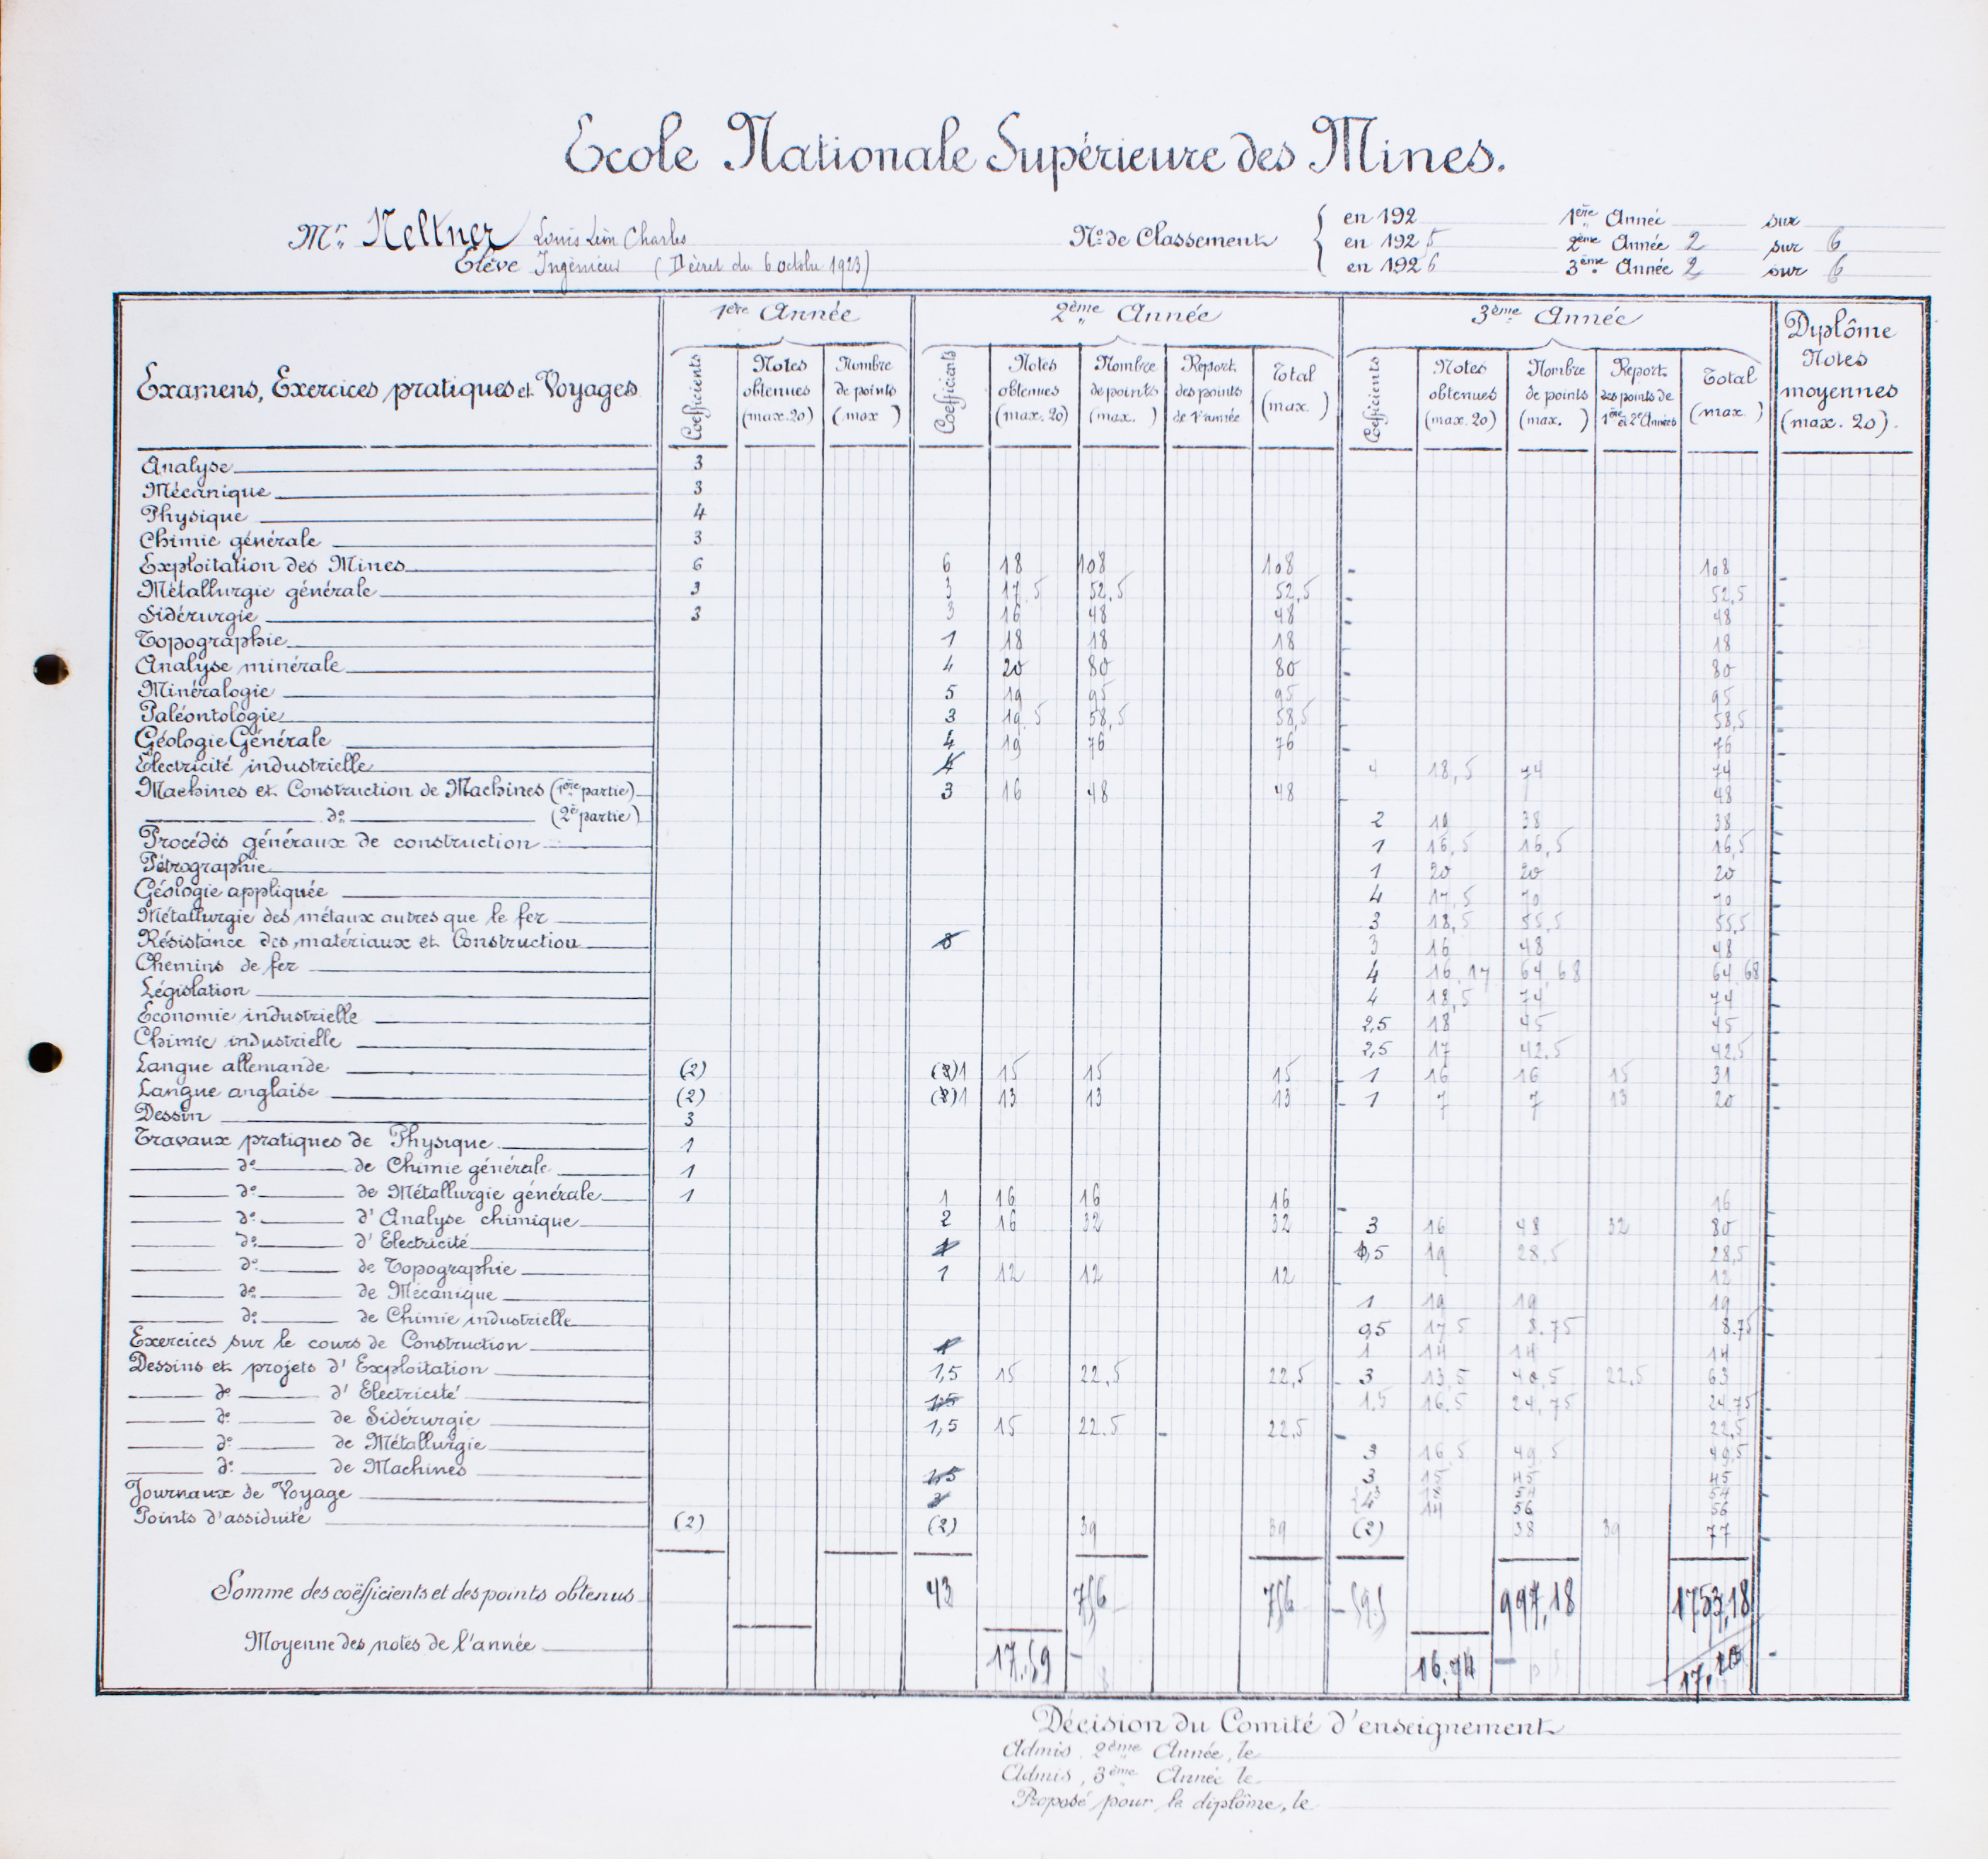 Ecole Nationale Supérieure des Mines.
Mr. Neltner Louis Léon Charles
Elève Ingénieur (Décret du 6 octobre 1923)
No de Classement
en 192 1ère Année sur
en 1925 2ème Année 2 sur 6
en 1926 3ème Année 2 sur 6
Examens, Exercices pratiques et Voyages
1ère Année 2ème Année 3ème Année Diplôme Notes moyennes (max. 20).
Coefficients Notes obtenues (max. 20) Nombre de points (max )
Coefficients Notes obtenues (max. 20) Nombre de points (max. ) Report des points de 1re année Total (max. )
Coefficients Notes obtenues (max. 20) Nombre de points (max. ) Report des points de 1ère et 2e Années Total (max. )
Analyse 3
Mécanique 3
Physique 4
Chimie générale 3
Exploitation des Mines 6 6 18 108 108 108
Métallurgie générale 3 3 17,5 52,5 52,5 52,5
Sidérurgie 3 3 16 48 48 48
Topographie 1 18 18 18 18
Analyse minérale 4 20 80 80 80
Minéralogie 5 19 95 95 95
Paléontologie 3 19,5 58,5 58,5 58,5
Géologie Générale 4 19 76 76 76
Electricité industrielle 4 4 18,5 74 74
Machines et Construction de Machines (1ère partie) 3 16 48 48 48
do (2e partie) 2 19 38 38
Procédés généraux de construction 1 16,5 16,5 16,5
Pétrographie 1 20 20 20
Géologie appliquée 4 17,5 70 70
Métallurgie des métaux autres que le fer 3 18,5 55,5 55,5
Résistance des matériaux et Construction 3 16 48 48
Chemins de fer 4 16,17 64,68 64,68
Législation 4 18,5 74 74
Economie industrielle 2,5 18 45 45
Chimie industrielle 2,5 17 42,5 42,5
Langue allemande (2) (2)1 15 15 15 1 16 16 15 31
Langue anglaise (2) (2)1 13 13 13 1 7 7 13 20
Dessin 3
Travaux pratiques de Physique 1
do de Chimie générale 1
do de Métallurgie générale 1 1 16 16 16 16
do d'Analyse chimique 2 16 32 32 3 16 48 32 80
do d'Electricité 1 1,5 19 28,5 28,5
do de Topographie 1 12 12 12 12
do de Mécanique 1 19 19 19
do de Chimie industrielle 0,5 17,5 8.75 8.75
Exercices sur le cours de Construction 1 1 14 14 14
Dessins et projets d'Exploitation 1,5 15 22,5 22,5 3 13,5 40,5 22,5 63
do d'Electricité 1,5 1,5 16,5 24,75 24,75
do de Sidérurgie 1,5 15 22.5 22,5 22,5
do de Métallurgie 3 16,5 49,5 49,5
do de Machines 1,5 3 15 45 45
Journaux de Voyage 54 54
4 14 56 56
Points d'assiduité (2) (2) 39 39 (2) 38 39 77
Somme des coëfficients et des points obtenus 43 756 756 59,5 997,18 1753,18
Moyenne des notes de l'année 17,59 16,74 17,20
Décision du Comité d'enseignement
Admis, 2ème Année, le
Admis, 3ème Année le
Proposé pour le diplôme, le